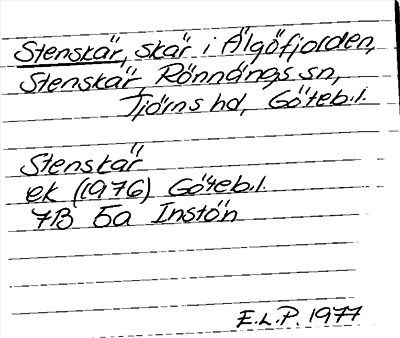 Stenskär, skär i Älgöfjorden,
Stenskär, Rönnängs sn,
Tjörns hd, Göteb.l.
Stenskär
ek (1976) Göteb.l.
7B 5a Instön
E.L.P. 1977